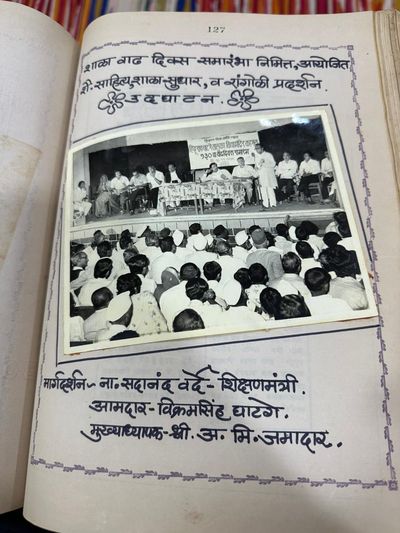 127
शाळा वाढ दिवस समारंभा निमित्त, आयोजित
शै. साहित्य, शाळा-सुधार, व रांगोळी प्रदर्शन.
उदघाटन.
१३० वा
मार्गदर्शन~ ना. सदानंद वर्दे - शिक्षणमंत्री.
आमदार - विक्रमसिंह घाटगे.
मुख्याध्यापक - श्री. अ. मि. जमादार.